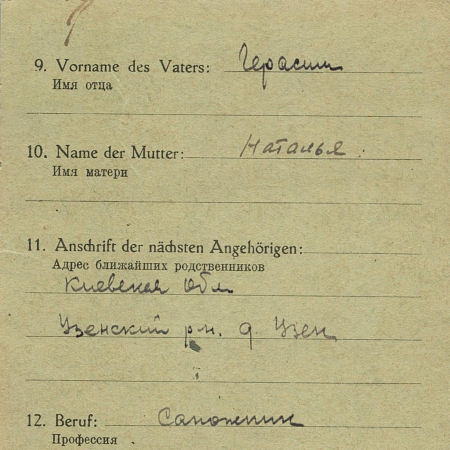 9. Vorname des Vaters: Герасим
Имя отца
10. Name der Mutter: Наталья
Имя матери
11. Anschrift der nächsten Angehörigen:
Адрес ближайших родственников
Киевская обл
Узенский рн. д. Узен
12. Beruf: Сапожник
Профессия